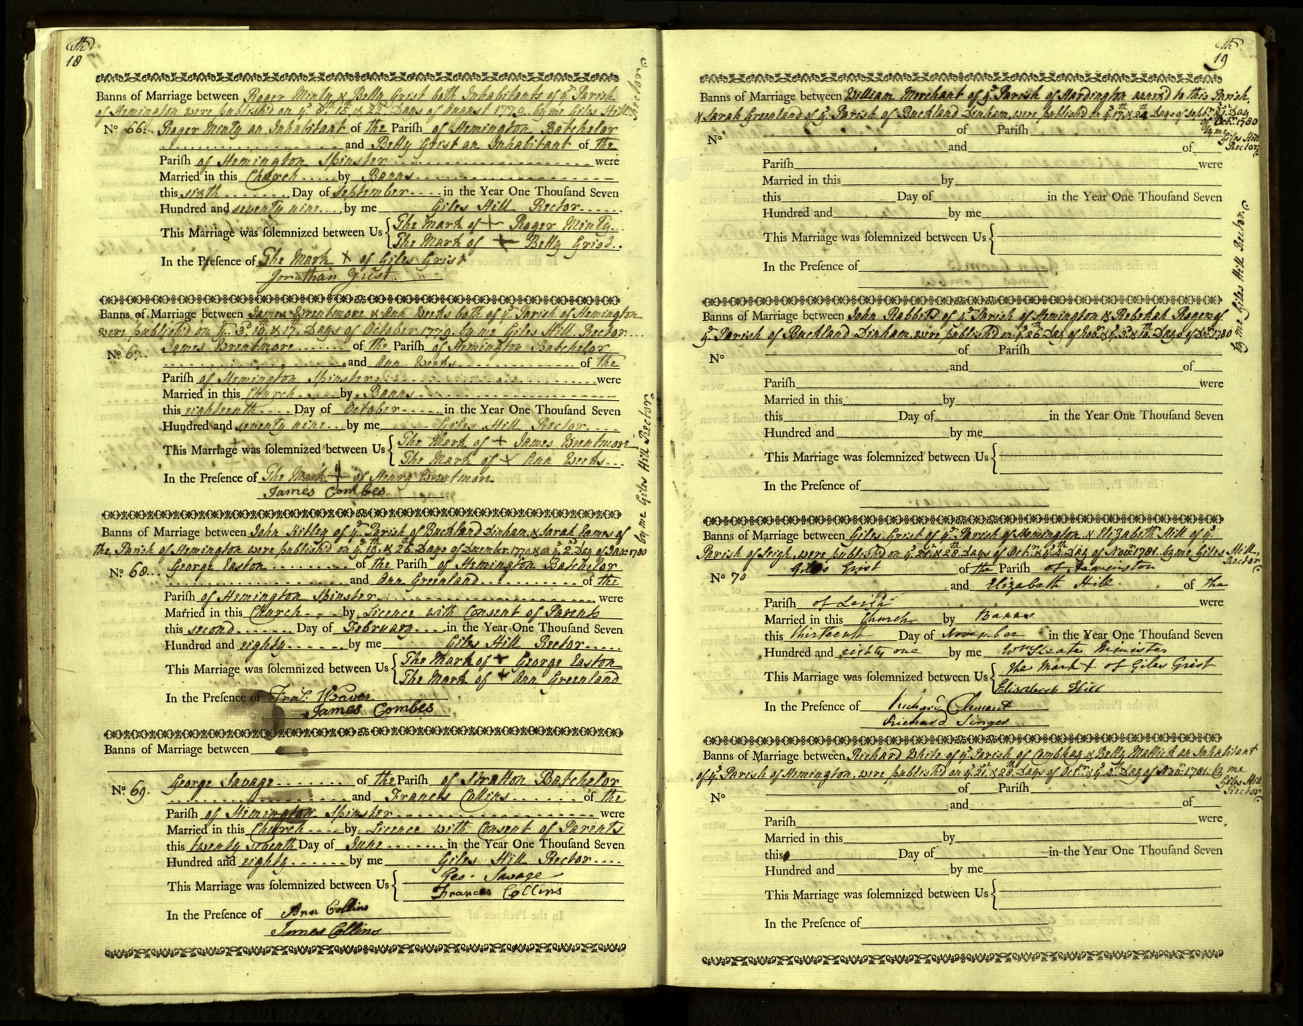 18
Banns of Marriage between Roger Minty & Betty Grist both Inhabitants of yᵉ Parish
of Hemington were published on yᵉ
Days of August 1779 by me Giles Hill Rector
Nº 66. Roger Minty an Inhabitant of the Pariſh of Hemington Batchelor
and Betty Grist an Inhabitant of the
Pariſh of Hemington Spinster were
Married in this Church by Banns
this sixth Day of September in the Year One Thouſand Seven
Hundred and seventy nine by me Giles Hill Rector
This Marriage was ſolemnized between Us { The Mark of + Roger Minty
The Mark of + Betty Grist
In the Preſence of The Mark + of Giles Grist
Jonathan Grist
Banns of Marriage between James Brentmore & Ann Weeks both of yᵉ Parish of Hemington
were published on yᵉ 3ᵈ 10 & 17 Days of October 1779 by me Giles Hill Rector
Nº 67. James Brentmore of the Pariſh of Hemington Batchelor
and Ann Weeks of the
Pariſh of Hemington Spinster were
Married in this Church by Banns
this eighteenth Day of October in the Year One Thouſand Seven
Hundred and seventy nine by me Giles Hill Rector
This Marriage was ſolemnized between Us { The Mark of + James Brentmore
The Mark of + Ann Weeks
In the Preſence of The Mark + of Henry Brentmore
James Combes
Banns of Marriage between John Hibley of yᵉ Parish of Buckland Dinham & Sarah Eames of
the Parish of Hemington were published on yᵉ & 26 Days of December 1779 & yᵉ 2ᵈ Day of Janʸ 1780
by me Giles Hill Rector
Nº 68. George Easton of the Pariſh of Hemington Batchelor
and Ann Greenland of the
Pariſh of Hemington Spinster were
Married in this Church by Licence with Consent of Parents
this second Day of February in the Year One Thouſand Seven
Hundred and eighty by me Giles Hill Rector
This Marriage was ſolemnized between Us { The Mark of + George Easton
The Mark of + Ann Greenland
In the Preſence of Fraˢ. Weaver
James Combes
Banns of Marriage between
Nº 69. George Savage of the Pariſh of Stratton Batchelor
and Frances Collins of the
Pariſh of Hemington Spinster were
Married in this Church by Licence with Consent of Parents
this twenty Day of June in the Year One Thouſand Seven
Hundred and eighty by me Giles Hill Rector
This Marriage was ſolemnized between Us { Geo. Savage
Frances Collins
In the Preſence of Ann Collins
James Collins
19
Banns of Marriage between William Merchant of yᵉ Parish of Hardington to this Parish,
& Sarah Greenland of yᵉ Parish of Buckland Dinham, were published on yᵉ 17 & 24 Days of Sepᵗ & Day
of Octʳ 1780
by me
Giles Hill
Rector
Nº of Pariſh
and of
Pariſh were
Married in this by
this Day of in the Year One Thouſand Seven
Hundred and by me
This Marriage was ſolemnized between Us {
In the Preſence of
Banns of Marriage between John Rabbitd of yᵉ Parish of Hemington & Rebekah of
yᵉ Parish of Buckland Dinham, were published on yᵉ 26 Day of Novʳ & yᵉ 3ᵈ & 10 Days of Decʳ 1780
by me Giles Hill Rector
Nº of Pariſh
and of
Pariſh were
Married in this by
this Day of in the Year One Thouſand Seven
Hundred and by me
This Marriage was ſolemnized between Us {
In the Preſence of
Banns of Marriage between Giles Grist of yᵉ Parish of Hemington & Elizabeth Hill of yᵉ
Parish of Leigh, were published on yᵉ 21 & 28 Days of Octʳ & yᵉ Day of Novʳ 1781 by me Giles Hill
Rector
Nº 70 Giles Grist of the Pariſh of Hemington
and Elizabeth Hill of the
Pariſh of Leigh were
Married in this Church by Banns
this thirteenth Day of November in the Year One Thouſand Seven
Hundred and eighty one by me Wᵐ Keate Minister
This Marriage was ſolemnized between Us { The Mark + of Giles Grist
Elizabeth Hill
In the Preſence of Richard Clement
Richard Singer
Banns of Marriage between Richard White of yᵉ Parish of & Betty an Inhabitant
of yᵉ Parish of Hemington, were published on yᵉ 21 & 28 Days of Octʳ & yᵉ Day of Novʳ 1781 by me
Giles Hill
Rector
Nº of Pariſh
and of
Pariſh were
Married in this by
this Day of in the Year One Thouſand Seven
Hundred and by me
This Marriage was ſolemnized between Us {
In the Preſence of